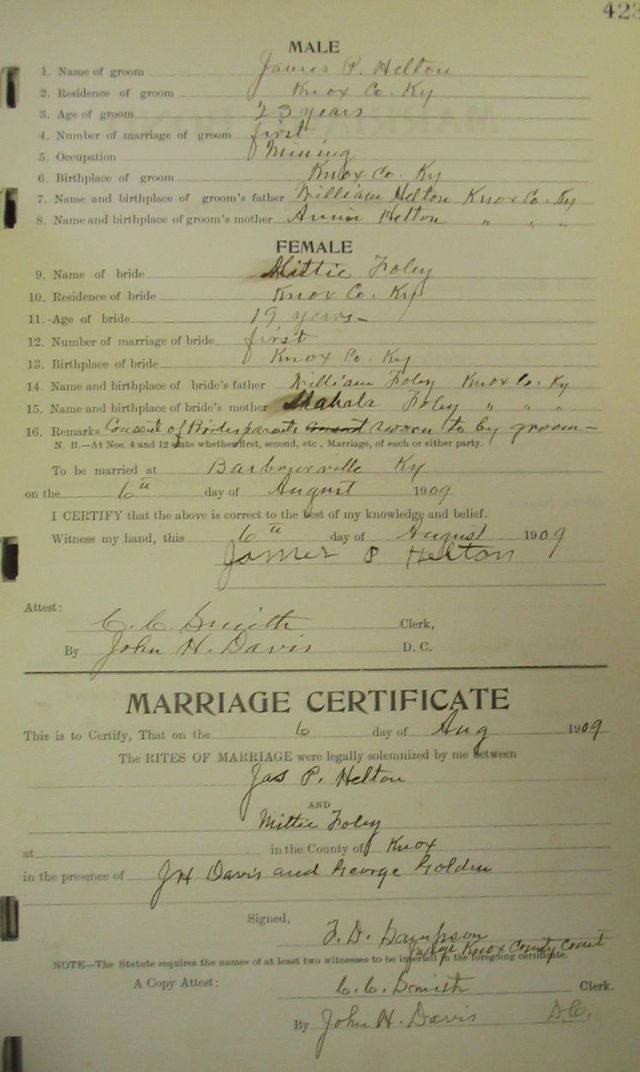 423
MALE
1. Name of groom James P. Helton
2. Residence of groom Knox Co. Ky
3. Age of groom 23 years
4. Number of marriage of groom first
5. Occupation Mining
6. Birthplace of groom Knox Co. Ky
7. Name and birthplace of groom's father William Helton Knox Co. Ky
8. Name and birthplace of groom's mother Annie Helton " " "
FEMALE
9. Name of bride Mittie Foley
10. Residence of bride Knox Co. Ky
11. Age of bride 19 years
12. Number of marriage of bride first
13. Birthplace of bride Knox Co. Ky
14 Name and birthplace of bride's father William Foley Knox Co. Ky
15. Name and birthplace of bride's mother Mahala Foley " " "
16. Remarks Consent of Brides parents sworn to by groom
N. B.—At Nos. 4 and 12 state whether first, second, etc. Marriage, of each or either party.
To be married at Barbourville Ky
on the 6th day of August 1909
I CERTIFY that the above is correct to the best of my knowledge and belief.
Witness my hand, this 6th day of August 1909
James P Helton
Attest:
C. C. Smith Clerk,
By John H. Davis D. C.
MARRIAGE CERTIFICATE
This is to Certify, That on the 6 day of Aug 1909
The RITES OF MARRIAGE were legally solemnized by me between
Jas P. Helton
AND
Mittie Foley
at in the County of Knox
in the presence of JH Davis and George Golden
Signed,
F. D. Sampson
Judge Knox County Court
NOTE—The Statute requires the names of at least two witnesses to be inserted in the foregoing certificate.
A Copy Attest: C. C. Smith Clerk.
By John H. Davis D.C.